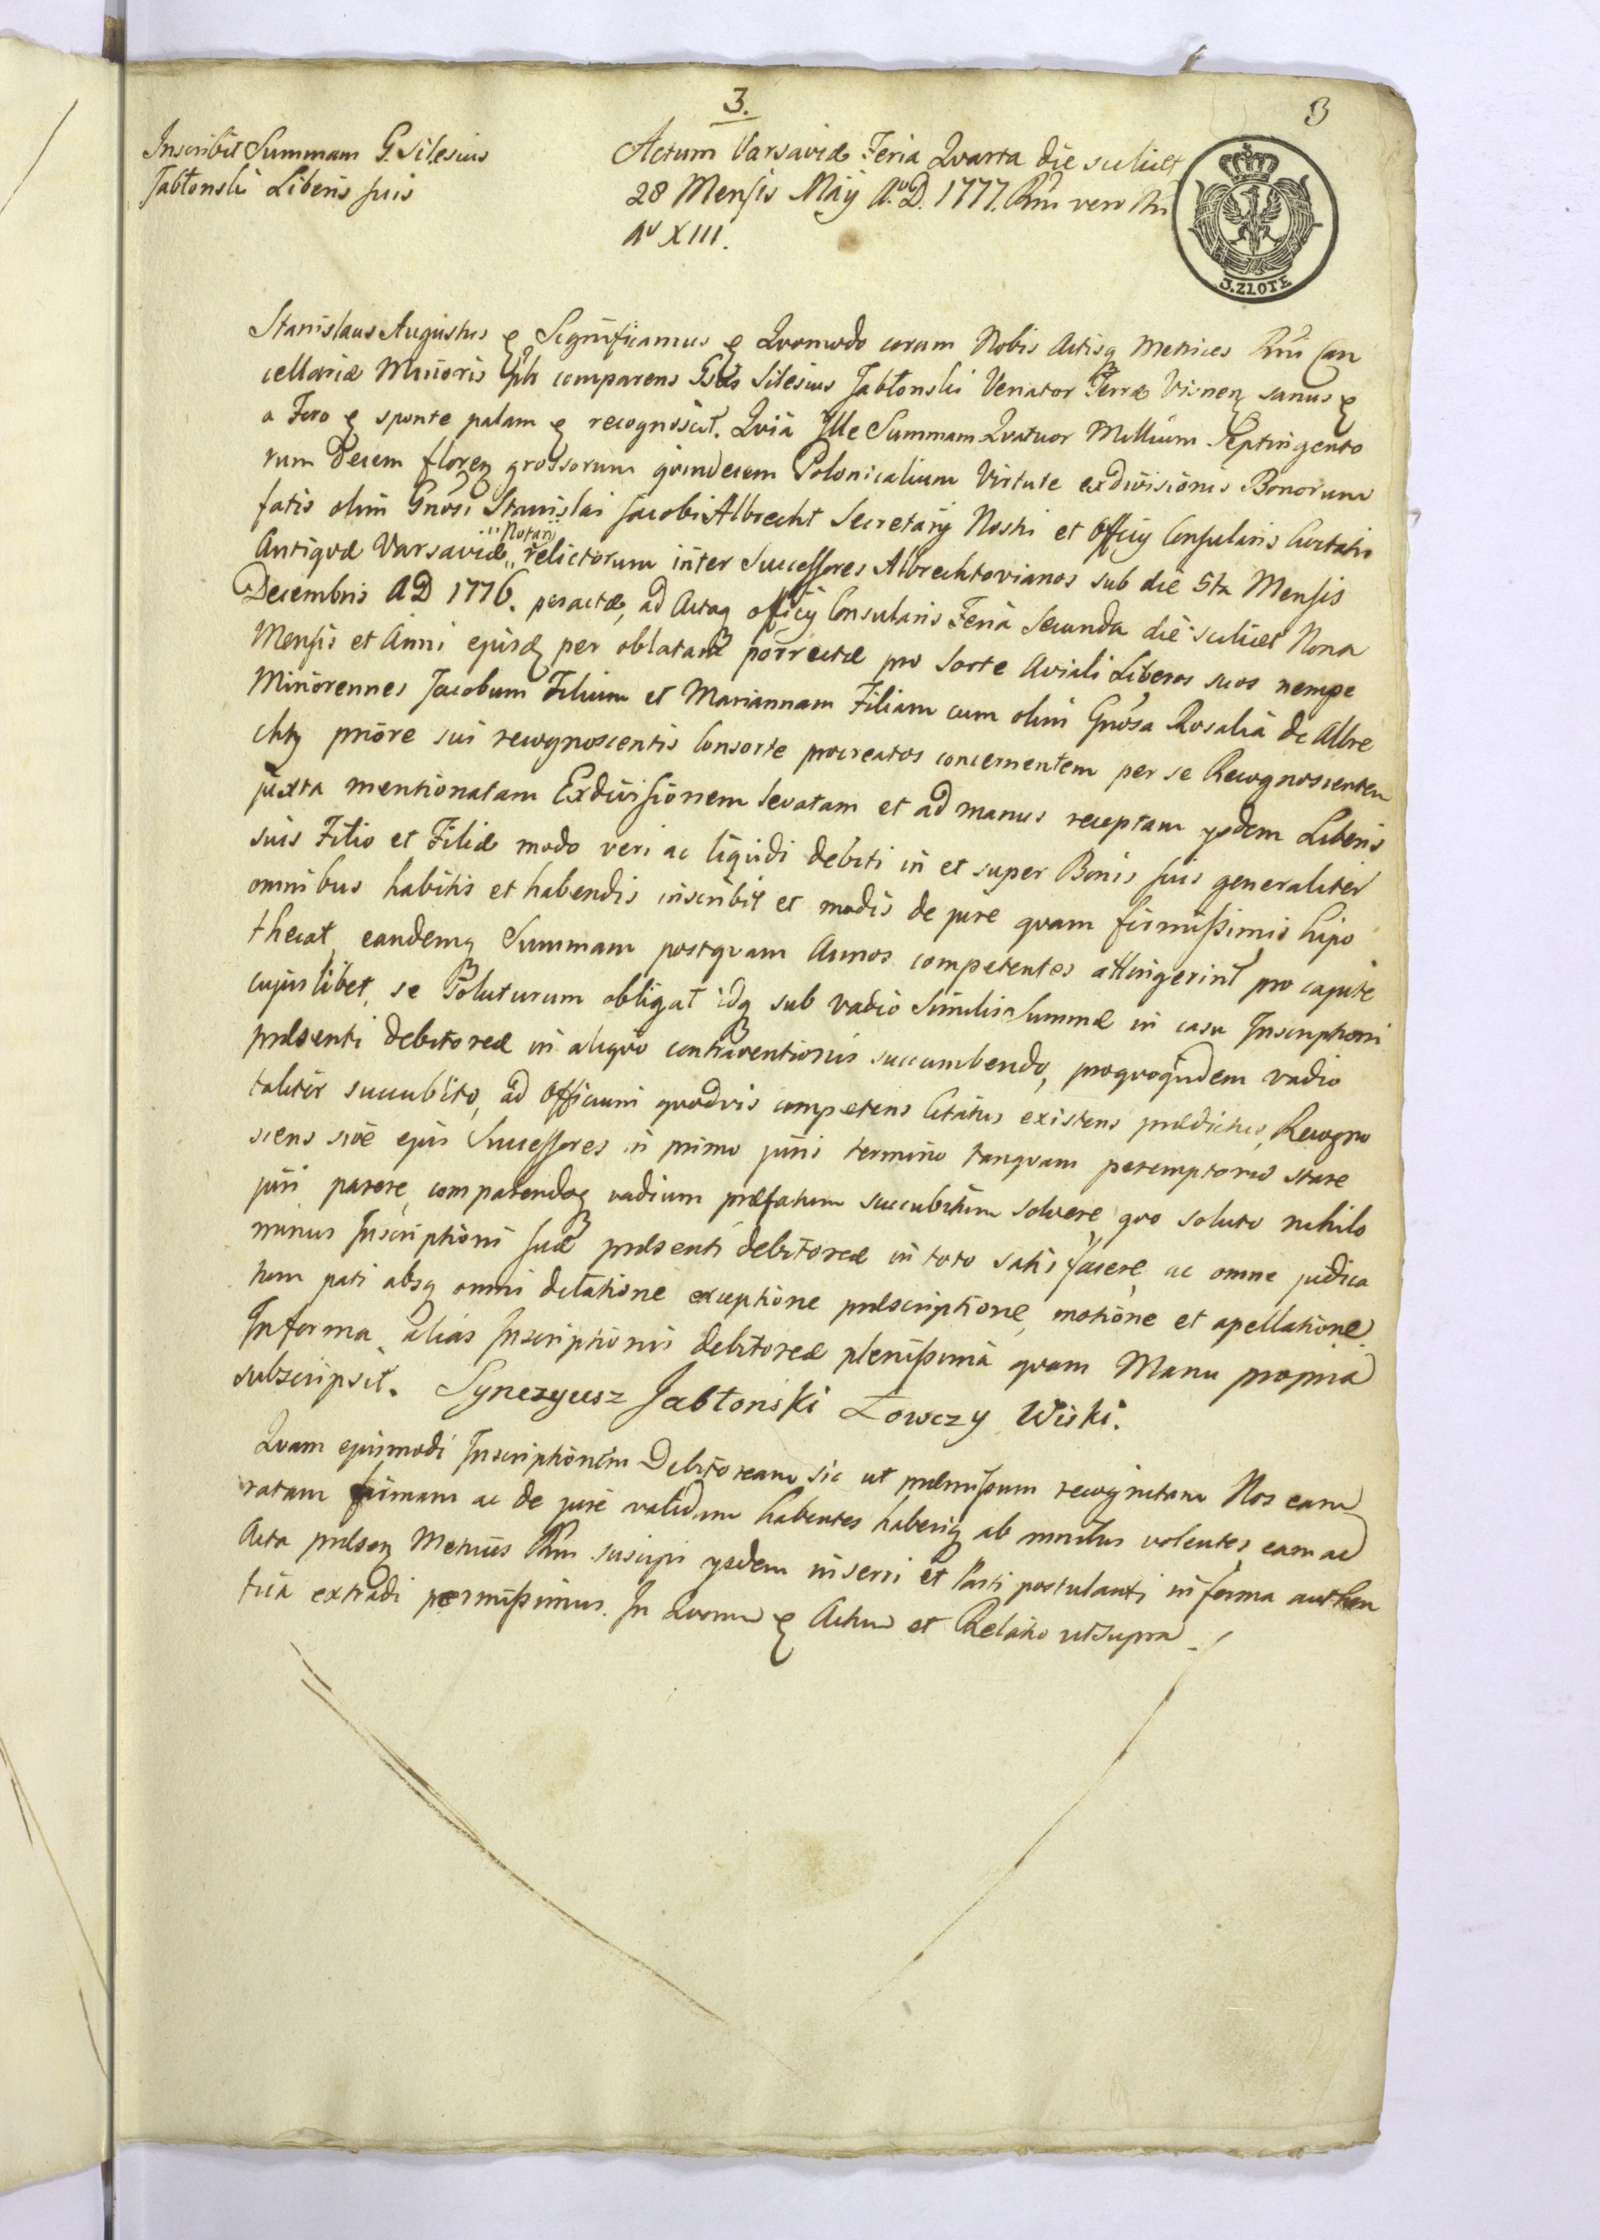 3.
3
Inscribit Summam G. Silesius
Jabłonski Liberis suis
Actum Varsaviæ Feria Quarta die scilicet
28 Mensis Maij A.D. 1777. Rni vero Nri
Aº XIII.
3. ZŁOTE
Stanislaus Augustus & Significamus & Quomodo coram Nobis Actisq Metrices Rni Can
cellariæ Minoris plr comparens Gsus Silesius Jabłonski Venator Terræ Visnen sanus &
a Foro & sponte palam & recognoscit. Quia Ille Summam Quatuor Millium Septingento
rum Decem floren grossorum quindecem Polonicalium Virtute exdivisionis Bonorum
fatis olim Gnosi Stanislai Jacobi Albrecht Secretarij Nostri et Officij Consularis Civitatis
Notarij
Antiquæ Varsaviæ relictorum inter Successores Albrechtovianos sub die 5ta Mensis
Decembris AD 1776. peractæ, ad Actaq officij Consularis Feria Secunda die scilicet Nona
Mensis et Anni ejusd per oblatam porrectæ pro Sorte Aviali Liberos suos nempe
Minorennes Jacobum Filium et Mariannam Filiam cum olim Gnosa Rosalia de Albre
chty priore sui recognoscentis Consorte procreatos concernentem per se Recognoscentem
juxta mentionatam Exdivisionem levatam et ad manus receptam ysdem Liberis
suis Filio et Filiæ modo veri ac liquidi debiti in et super Bonis suis generaliter
omnibus habitis et habendis inscribit et modis de jure quam firmissimis hipo
thecat, eandemq Summam postquam Annos competentes attingerint pro capite
cujuslibet, se Soluturum obligat idq sub vadio Similis Summæ in casu Inscriptioni
præsenti debitoreæ in aliquo contraventionis succumbendo, proquoquidem vadio
taliter succubito, ad Officium quodvis competens Citatus existens prædictus, Recogno
scens sive ejus Successores in primo juris termino tanquam peremptorio stare
juri parere, comparendoq vadium præfatum succubitum solvere, quo soluto nihilo
minus Inscriptioni suæ præsenti debitoreæ in toto satisfacere, ac omne judica
tum pati absq omni dilatione exceptione præscriptione, motione et apellatione.
In forma alias Inscriptionis debitoreæ plenissima quam Manu propria
subscripsit. Synezyusz Jabłonski Łowczy Wiski.
Quam ejusmodi Inscriptionem Debitoream sic ut præmissum recognitam Nos eam
ratam firmam ac de jure validam habentes haberiq ab omnibus volentes, eam ad
Acta præsen Metrices Rni suscipi ysdem inseri et Parti postulanti in forma authen
tica extradi permissimus. In Quorum & Actum et Relatio ut supra